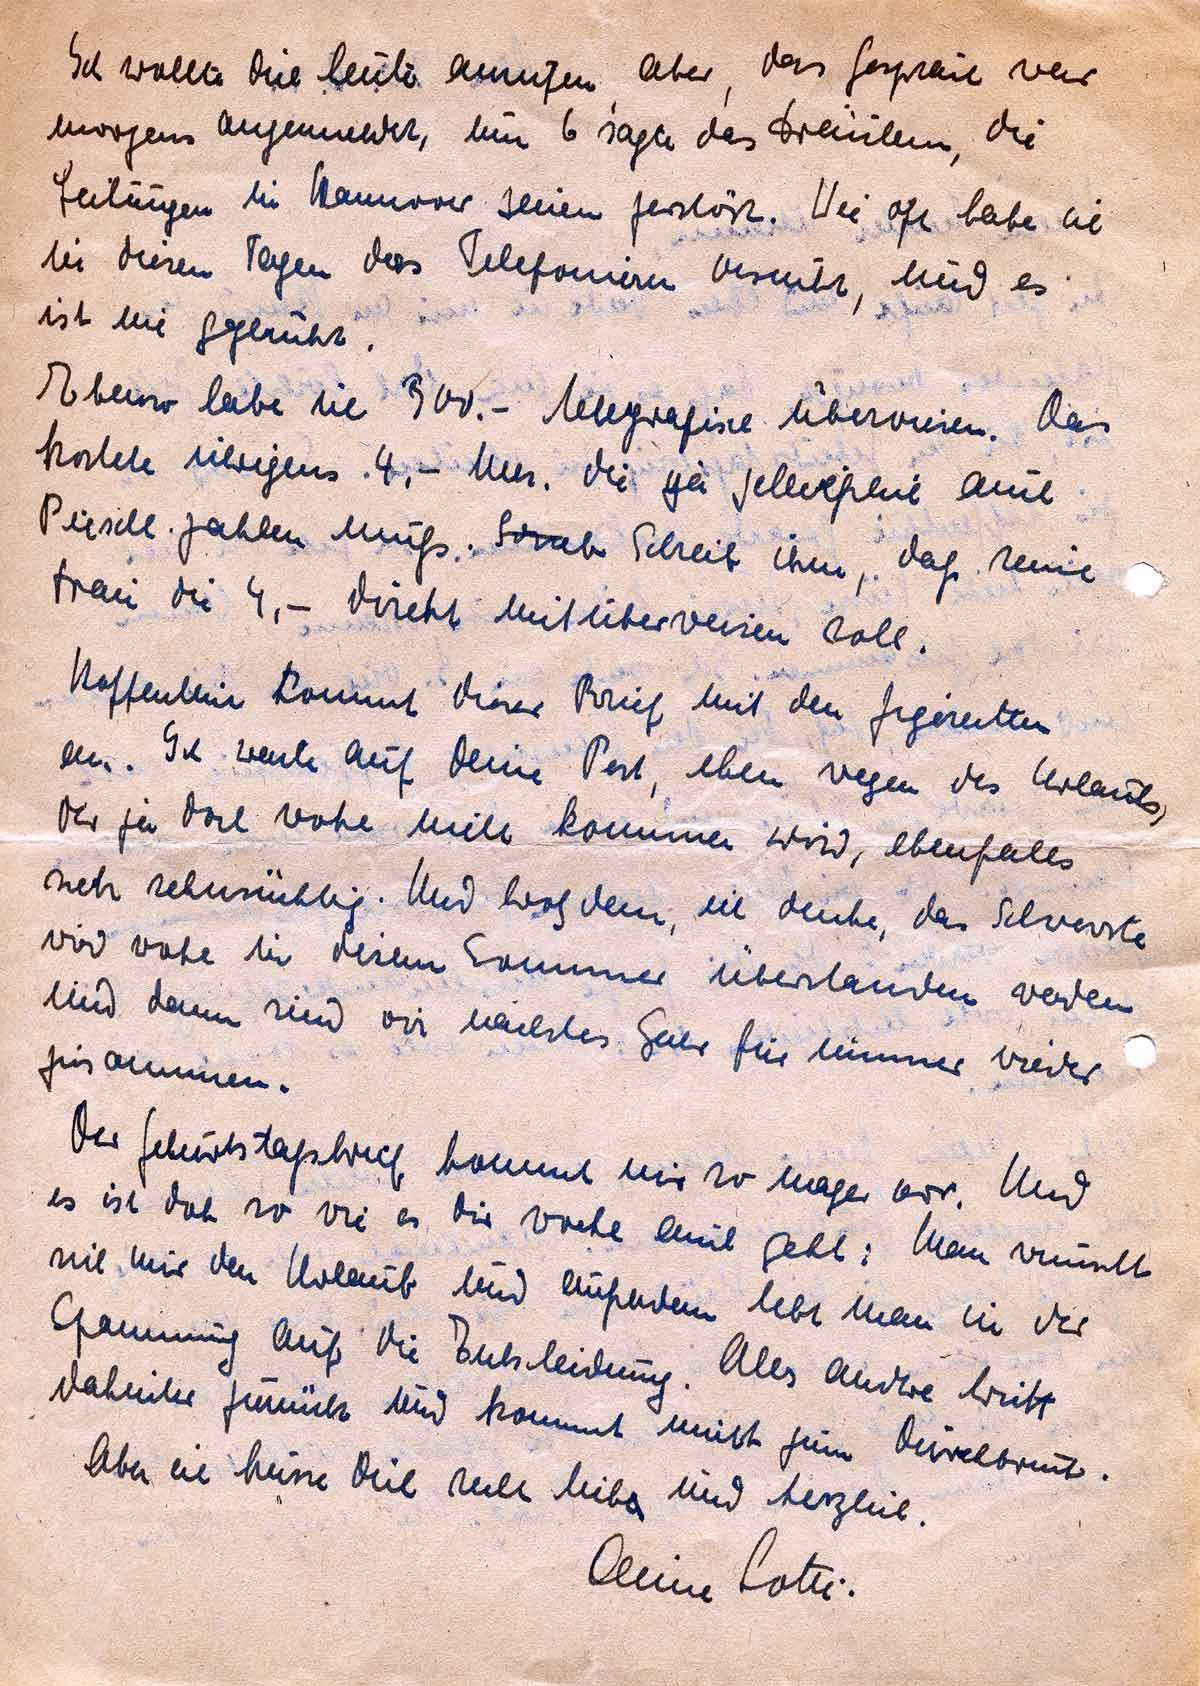 Ich wollte Dich heute anrufen, aber, das Gespräch war
morgens angemeldet, um 6 sagte das Fräulein, die
Leitungen in Hannover seien zerstört. Wie oft habe ich
in diesen Tagen das Telefonieren versucht, und es
ist nie geglückt.
Ebenso habe ich 300.- telegrafisch überwiesen. Das
kostete übrigens 4,- Mk. die ja schliesslich auch
zahlen muß. Schreib ihm, daß seine
Frau die 4,- direkt mitüberweisen soll.
Hoffentlich kommt dieser Brief mit den Zigaretten
an. Ich warte auf Deine Post, eben wegen des Urlaubs,
der ja doch wohl nicht kommen wird, ebenfalls
sehr sehnsüchtig. Und trotzdem, ich denke, das Schwerste
wird wohl in diesem Sommer überstanden werden
und dann sind wir nächstes Jahr für immer wieder
zusammen.
Der Geburtstagsbrief kommt mir so mager vor. Und
es ist doch so wie es Dir wohl auch geht: Man wünscht
sich nur den Urlaub und außerdem lebt man in der
Spannung auf die Entscheidung. Alles andere tritt
dahinter zurück und kommt nicht zum Durchbruch.
Aber ich küsse Dich sehr lieb und herzlich.
Deine Lotti.